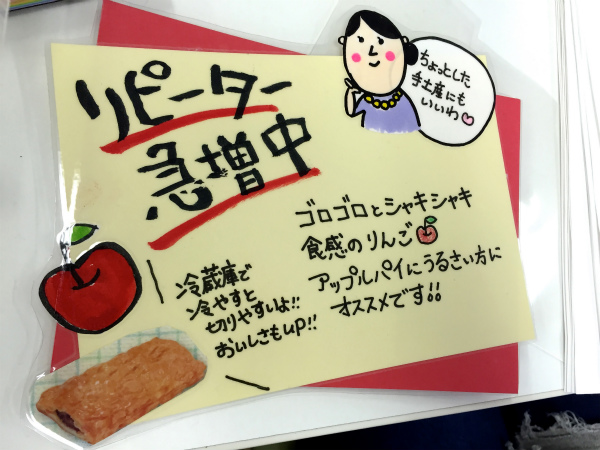 リピーター
急増中
ちょっとした
手土産にも
いいわ♡
ゴロゴロとシャキシャキ
食感のりんご
アップルパイにうるさい方に
オススメです!!
冷蔵庫で
冷やすと
切りやすいよ!!
おいしさもup!!